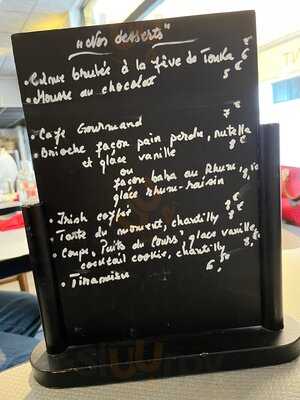 "Nos desserts"
• Crème brulée à la fève de Tonka 6 €
• Mousse au chocolat 5 €
7 €
• Café Gourmand
• Brioche façon pain perdu, nutella 8 €
et glace vanille
ou
façon baba au Rhum,
glace rhum-raisin
• Irish coffee 8 €
• Tarte du moment, chantilly 8 €
• Coupe, Fruits du cours, glace vanille
cocktail cookie, chantilly
• Financiers